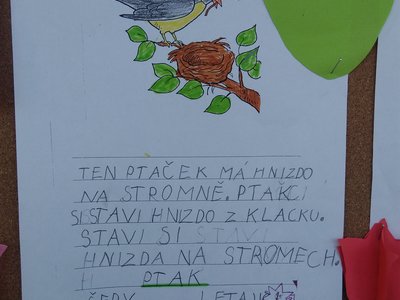 TEN PTAČEK MÁ HNIZDO
NA STROMNĚ. PTAKCI
SI STAVI HNIZDO Z KLACKU.
STAVI SI STAVI
HNIZDA NA STROMECH.
PTAK
LETAJ